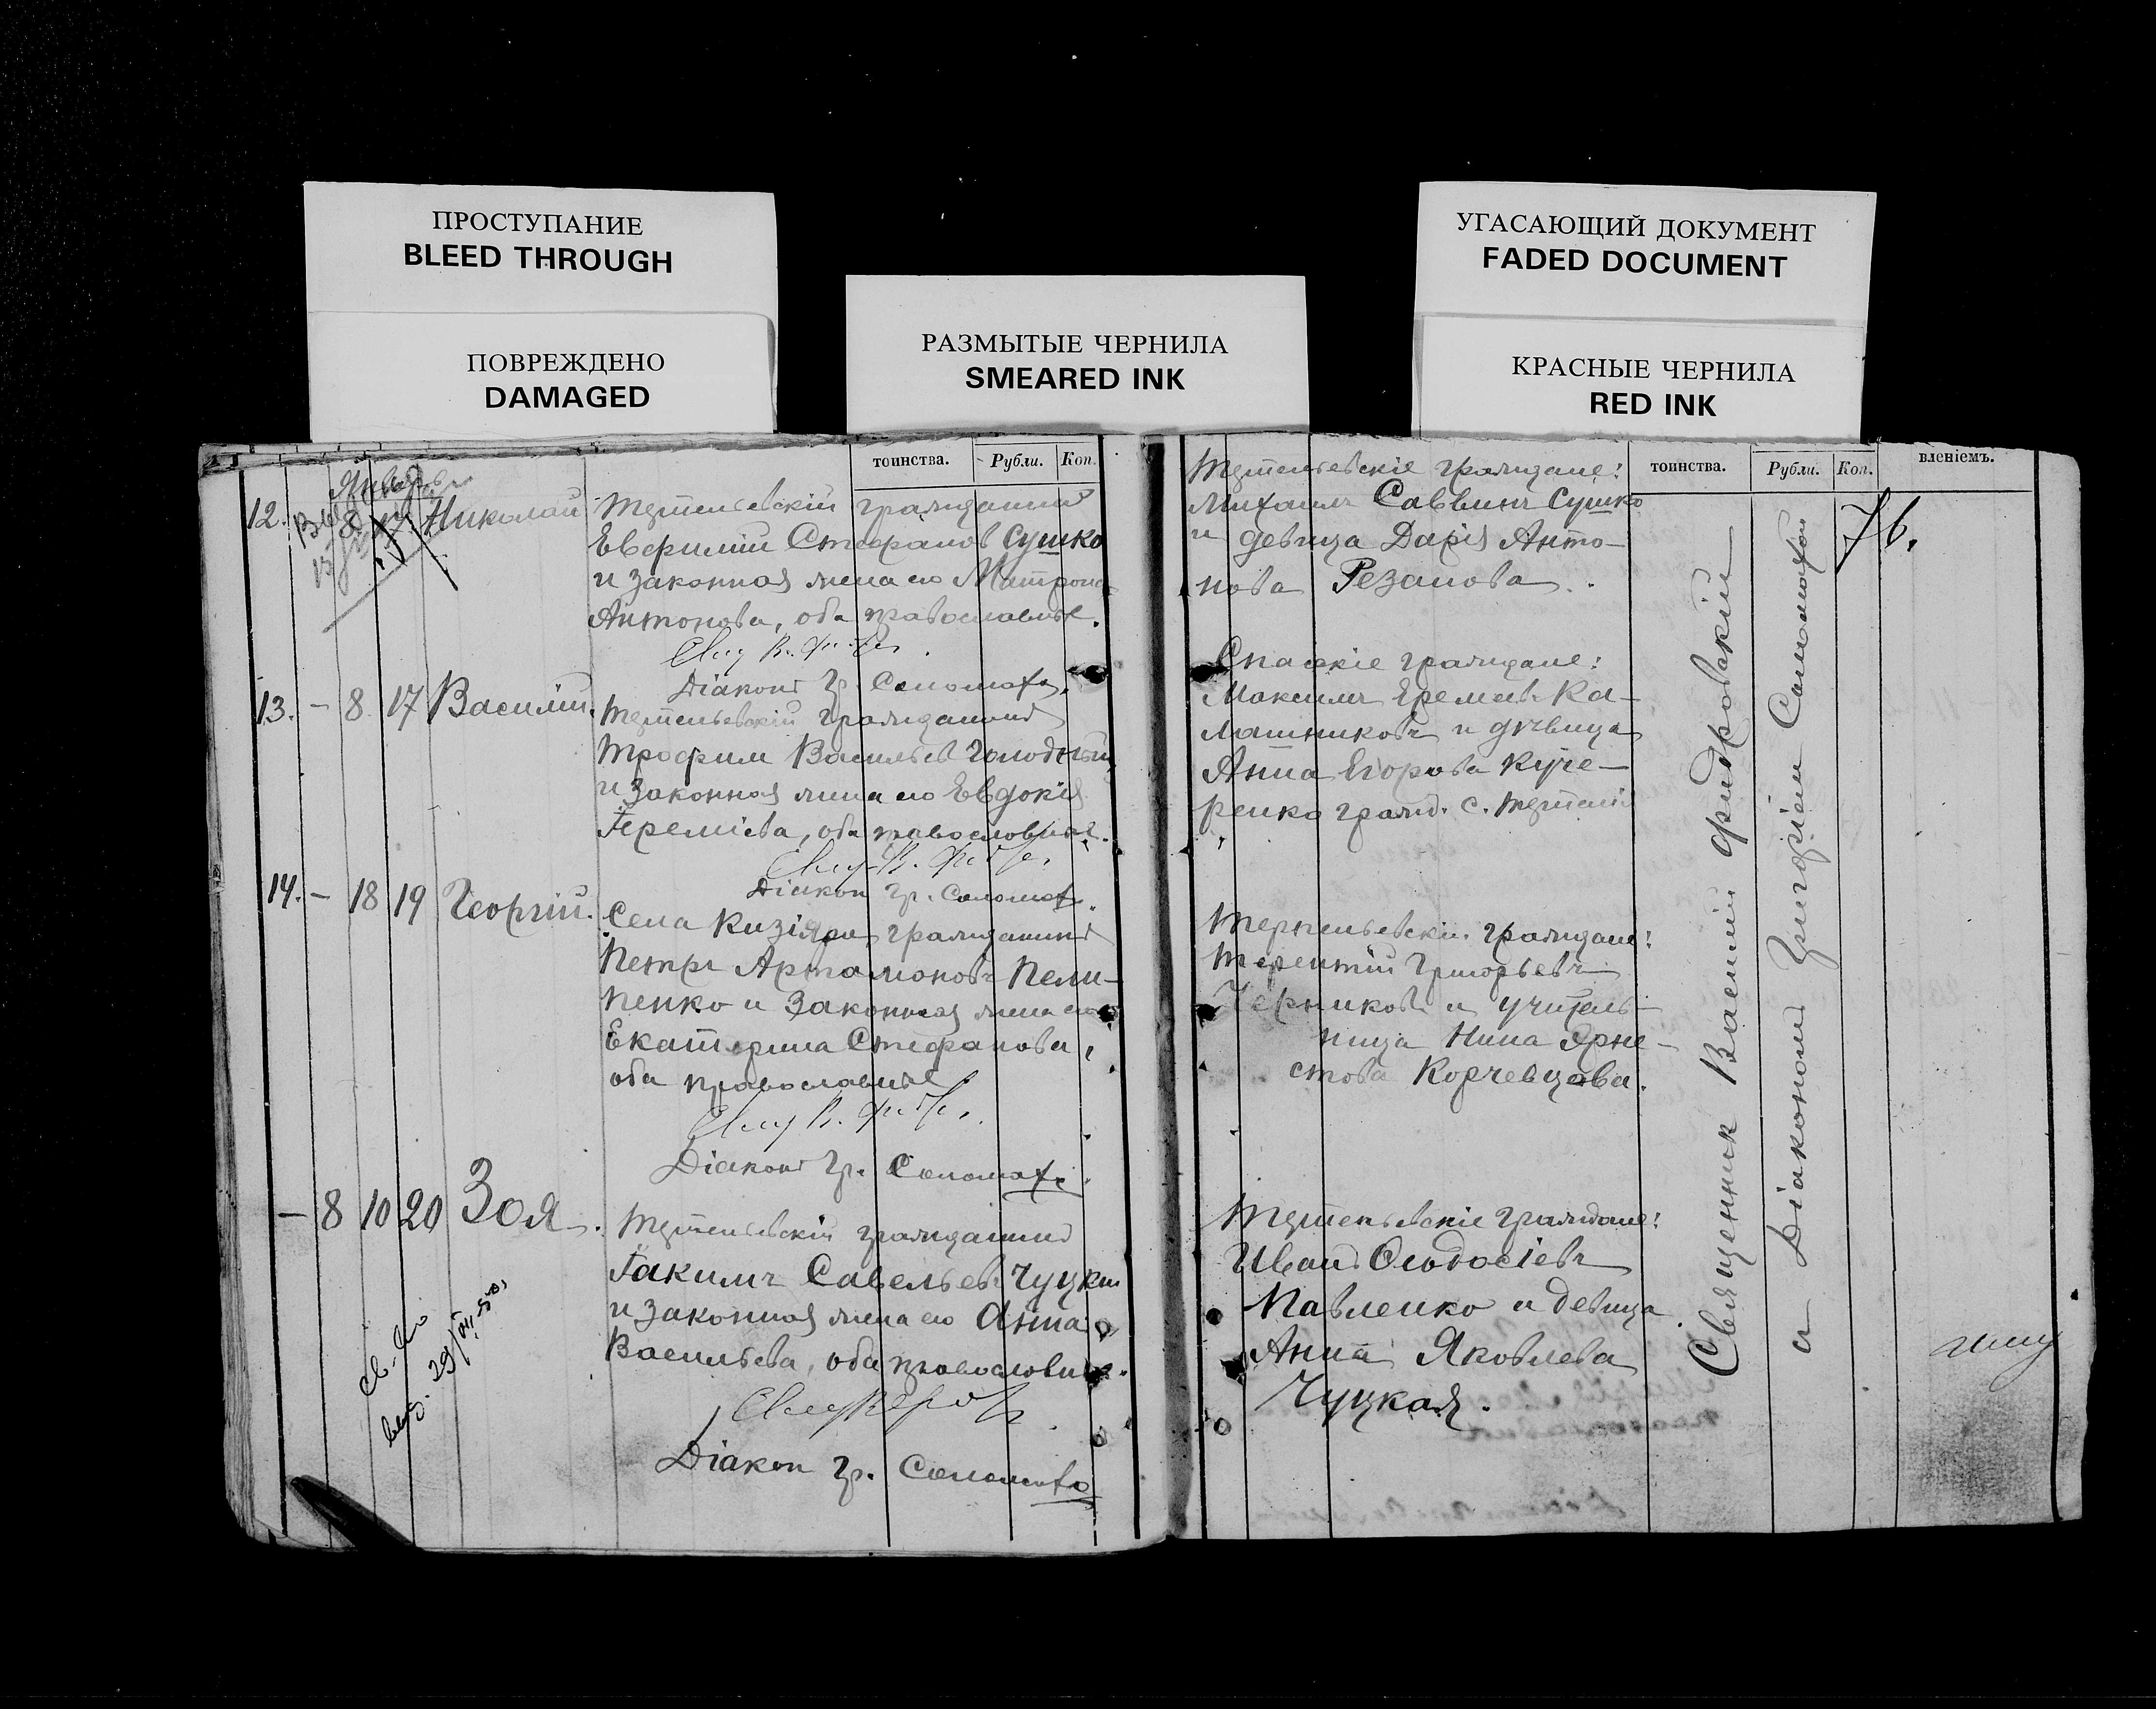 ПРОСТУПАНИЕ
BLEED THROUGH
ПОВРЕЖДЕНО
DAMAGED
РАЗМЫТЫЕ ЧЕРНИЛА
SMEARED INK
УГАСАЮЩИЙ ДОКУМЕНТ
FADED DOCUMENT
КРАСНЫЕ ЧЕРНИЛА
RED INK
тоинства. Рубли. Коп.
12. 8 17 Николай
гражданинъ
Стефановъ Сушко
и законная жена его Матрона
Антонова, оба православные.
Діаконъ Гр. Соломаха
13. – 8 17 Василій.
гражданинъ
Трофим Васильевъ Голодный
и законная жена его Евдокія
Іереміева, оба православные.
Діакон Гр. Соломаха.
14. – 18 19 Георгій.
Села Кизіяра, гражданинъ
Петръ Артамоновъ Пели-
пенко и законная жена его
Екатерина Стефанова,
оба православные
Діаконъ Гр. Соломаха.
– 8 10 20 Зоя.
гражданинъ
Іакимъ Савельевъ Чуцкій
и законная жена его Анна
Васильева, оба православные.
Діакон Гр. Соломаха
тоинства. Рубли. Коп. вленіемъ.
граждане:
Михаилъ Саввинъ Сушко
и девица Дарія Анто-
нова Резанова.
Спаскіе граждане:
Максимъ Еремеевъ Ка-
лашниковъ и дѣвица
Анна Егорова Куче-
ренко гражд. с.
граждане:
Терентій Григорьевъ
Черниковъ и учитель-
ница Нина Эрне-
стова Корчевцова.
граждане:
Иванъ Ѳеодосіевъ
Павленко и девица
Анна Яковлева
Чуцкая.
Священник Василий
и Діакономъ Григоріем Соломахою